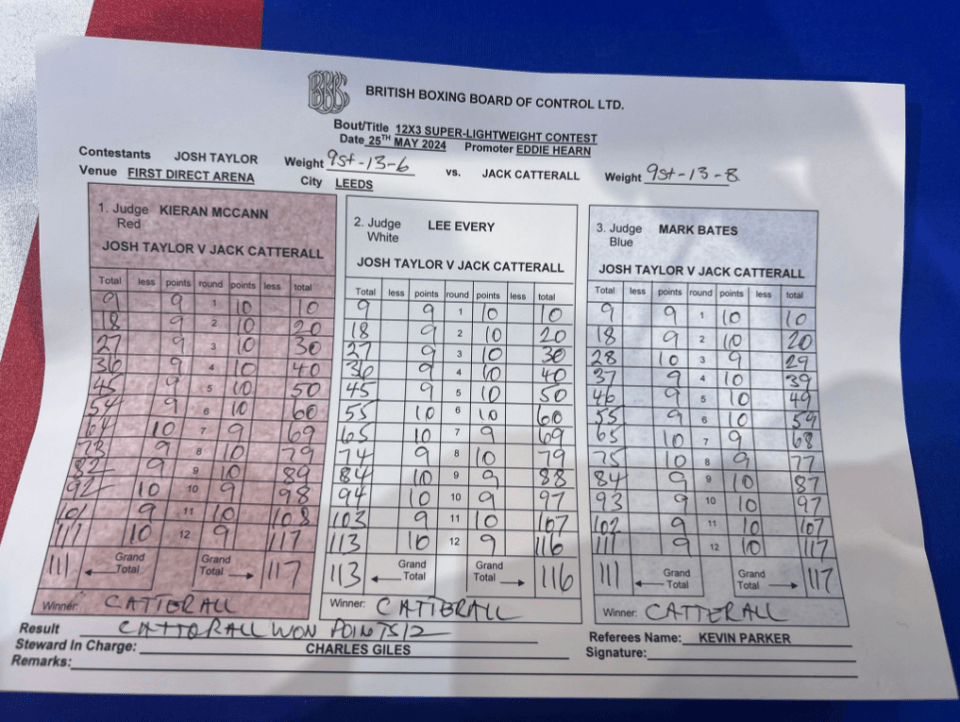 BBBC
BRITISH BOXING BOARD OF CONTROL LTD.
Bout/Title 12X3 SUPER-LIGHTWEIGHT CONTEST
Date 25TH MAY 2024 Promoter EDDIE HEARN
Contestants JOSH TAYLOR Weight 9st-13-6 vs. JACK CATTERALL Weight 9st-13-8
Venue FIRST DIRECT ARENA City LEEDS
1. Judge KIERAN MCCANN
Red
JOSH TAYLOR V JACK CATTERALL
Total less points round points less total
9 9 1 10 10
18 9 2 10 20
27 9 3 10 30
36 9 4 10 40
45 9 5 10 50
54 9 6 10 60
64 10 7 9 69
73 9 8 10 79
82 9 9 10 89
92 10 10 9 98
101 9 11 10 108
111 10 12 9 117
111 Grand Total Grand Total 117
Winner: CATTERALL
2. Judge LEE EVERY
White
JOSH TAYLOR V JACK CATTERALL
Total less points round points less total
9 9 1 10 10
18 9 2 10 20
27 9 3 10 30
36 9 4 10 40
45 9 5 10 50
55 10 6 10 60
65 10 7 9 69
74 9 8 10 79
84 10 9 9 88
94 10 10 9 97
103 9 11 10 107
113 10 12 9 116
113 Grand Total Grand Total 116
Winner: CATTERALL
3. Judge MARK BATES
Blue
JOSH TAYLOR V JACK CATTERALL
Total less points round points less total
9 9 1 10 10
18 9 2 10 20
28 10 3 9 29
37 9 4 10 39
46 9 5 10 49
55 9 6 10 59
65 10 7 9 68
75 10 8 9 77
84 9 9 10 87
93 9 10 10 97
102 9 11 10 107
111 9 12 10 117
111 Grand Total Grand Total 117
Winner: CATTERALL
Result CATTORALL WON POINTS 12
Steward In Charge: CHARLES GILES
Remarks:
Referees Name: KEVIN PARKER
Signature: